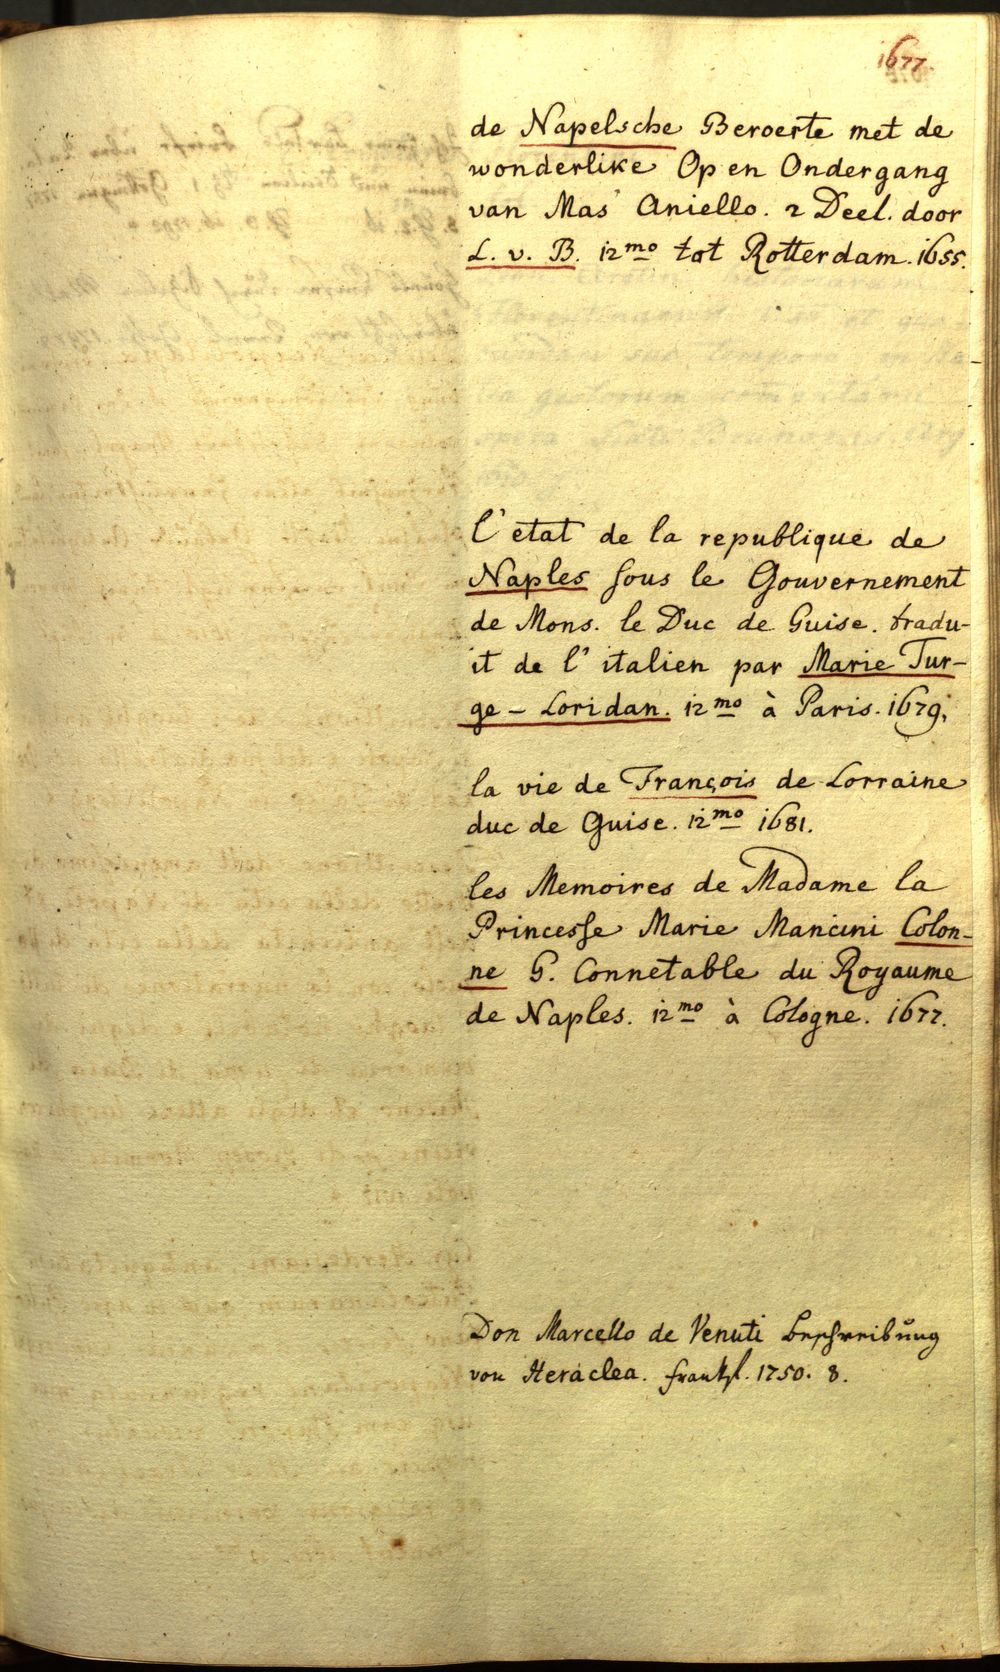 1677.
de Napelsche Beroerte met de
wonderlike Op en Ondergang
van Mas' Aniello. 2 Deel. door
L. v. B. 12mo tot Rotterdam. 1655.
l'etat de la republique de
Naples sous le Gouvernement
de Mons. le Duc de Guise. tradu-
it de l'italien par Marie Tur-
ge - Loridan. 12mo à Paris. 1679.
la vie de François de Lorraine
duc de Guise. 12mo 1681.
les Memoires de Madame la
Princesse Marie Mancini Colon-
ne G. Connetable du Royaume
de Naples. 12mo à Cologne. 1677.
Don Marcello de Venuti Beschreibung
von Heraclea. frankf. 1750. 8.